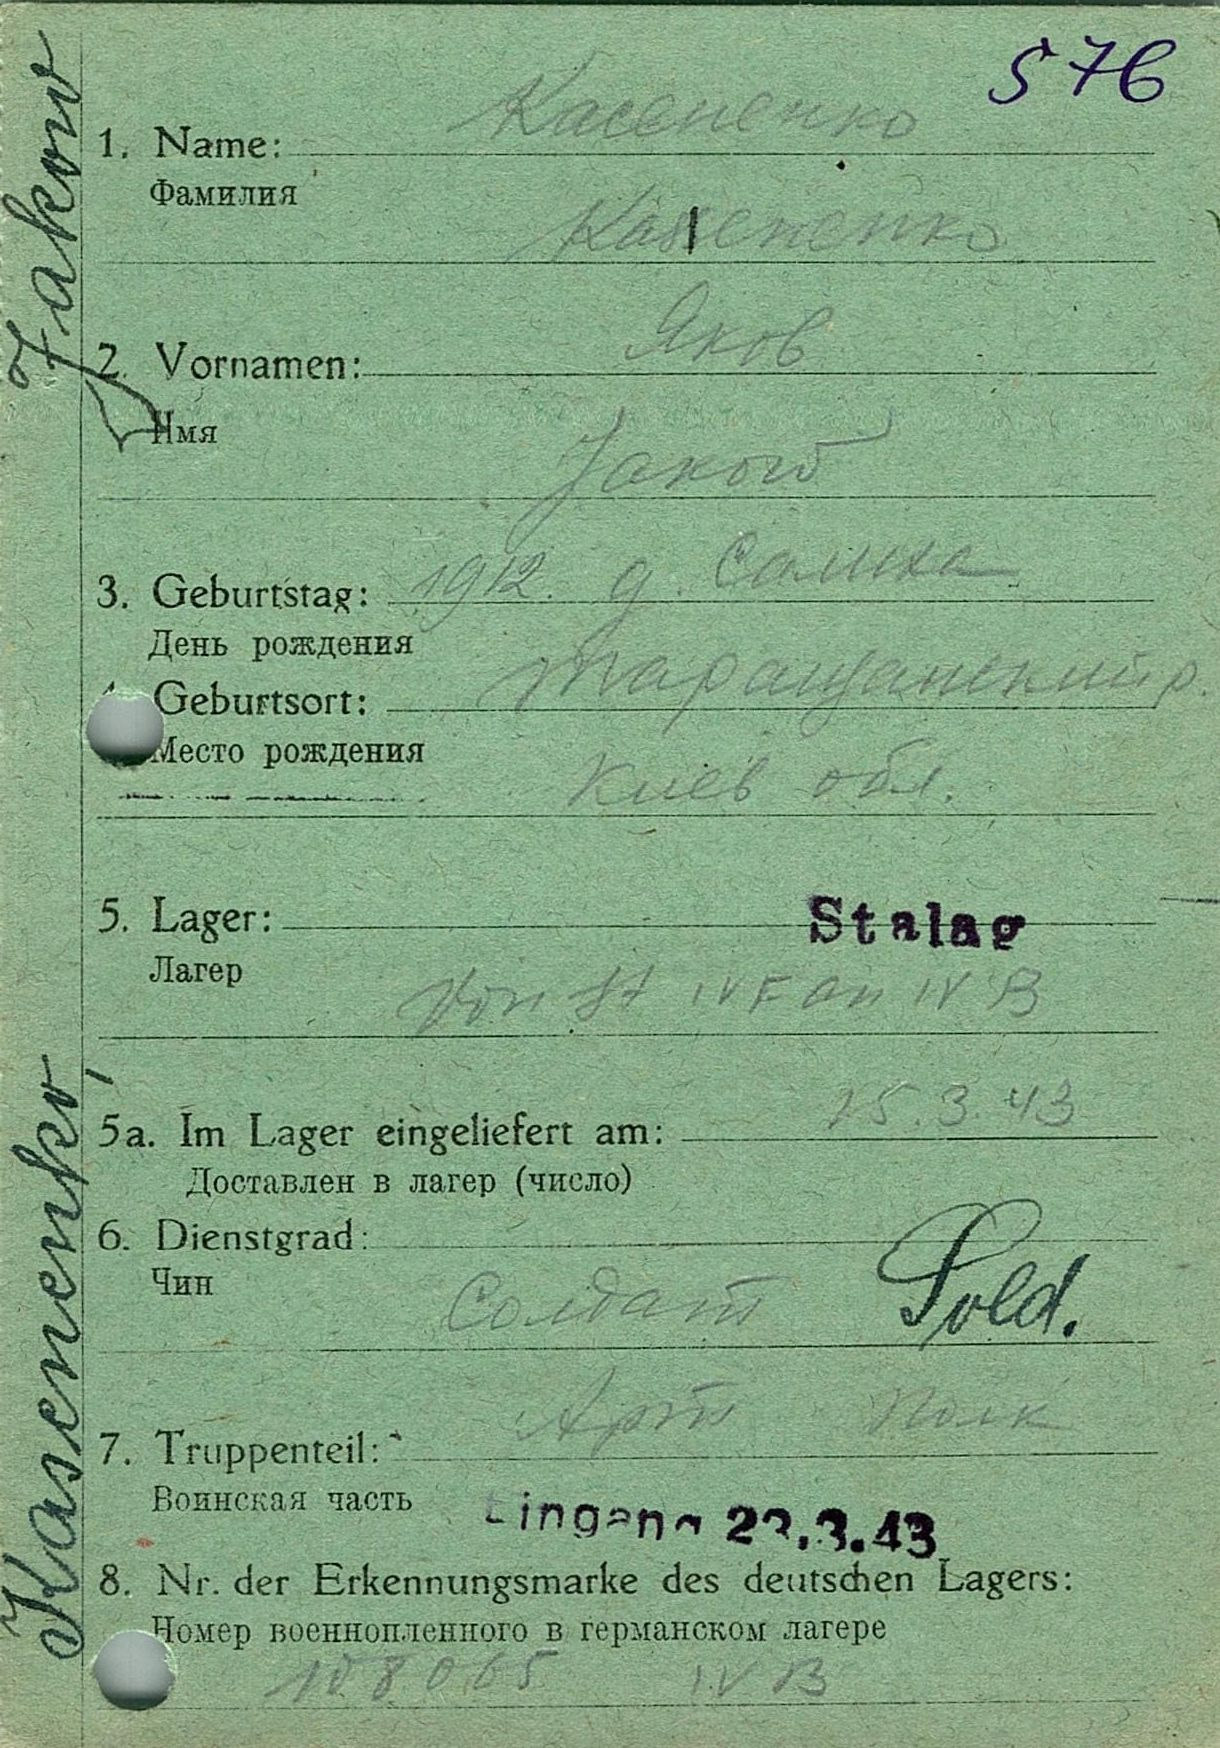 S 76
Касененко
1. Name:
Фамилия
Kassenenko
Яков
2. Vornamen:
Имя
Jakow
1912. д. Салиха
3. Geburtstag:
День рождения
Таращанский р.
Geburtsort:
Место рождения
Киев обл.
5. Lager:
Stalag
Лагер
Von St IV F an IV B
15.3.43
5a. Im Lager eingeliefert am:
Доставлен в лагер (число)
6. Dienstgrad:
Чин
Солдат Sold.
Арт Полк
7. Truppenteil:
Воинская часть
Eingang 22.3.43
8. Nr. der Erkennungsmarke des deutschen Lagers:
Номер военнопленного в германском лагере
108065 IV B
Kasenenko, Jakow